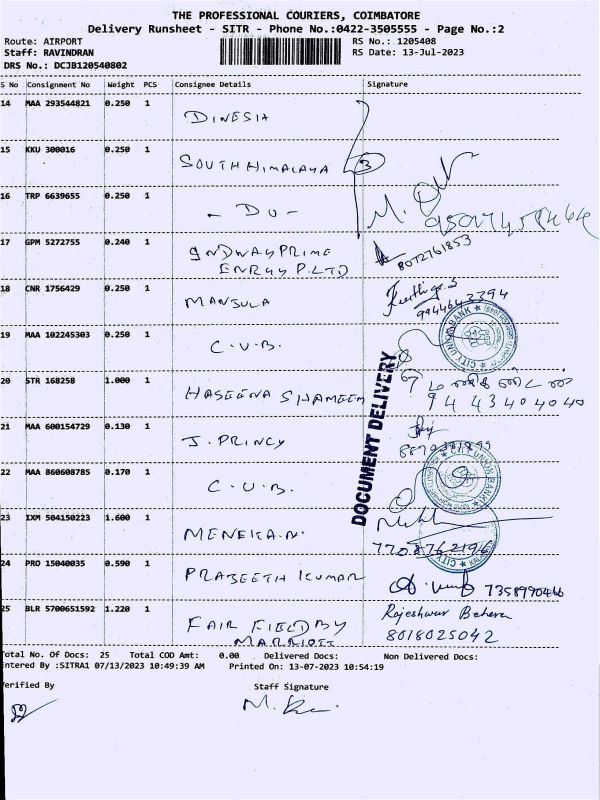 THE PROFESSIONAL COURIERS, COIMBATORE
Delivery Runsheet - SITR - Phone No.:0422-3505555 - Page No.:2
Route: AIRPORT RS No.: 1205408
Staff: RAVINDRAN RS Date: 13-Jul-2023
DRS No.: DCJB120540802
S No Consignment No Weight PCS Consignee Details Signature
14 MAA 293544821 0.250 1 DINESIA
15 KKU 300016 0.250 1 SOUTH HIMALAYA 3
16 TRP 6639655 0.250 1 - DO -
17 GPM 5272755 0.240 1 GNDWAY PRIME
ENRGY P.LTD 8072761853
18 CNR 1756429 0.250 1 MANSULA
9944643394
19 MAA 102245303 0.250 1 C.U.B.
CITY UNION BANK
20 STR 168258 1.000 1 HASEENA SHAMEEM
94 43404040
DOCUMENT DELIVERY
21 MAA 600154729 0.130 1 J. PRINCY
22 MAA 860608785 0.170 1 C.U.B.
CITY UNION BANK
23 IXM 504150223 1.600 1 MENEKA.N
7708762196
24 PRO 15040035 0.590 1 PRAJEETH KUMAR
7358990466
25 BLR 5700651592 1.220 1 FAIR FIELD BY
MARRIOTT
Rajeshwar Behera
8018025042
Total No. Of Docs: 25 Total COD Amt: 0.00 Delivered Docs: Non Delivered Docs:
Entered By :SITRA1 07/13/2023 10:49:39 AM Printed On: 13-07-2023 10:54:19
Verified By Staff Signature